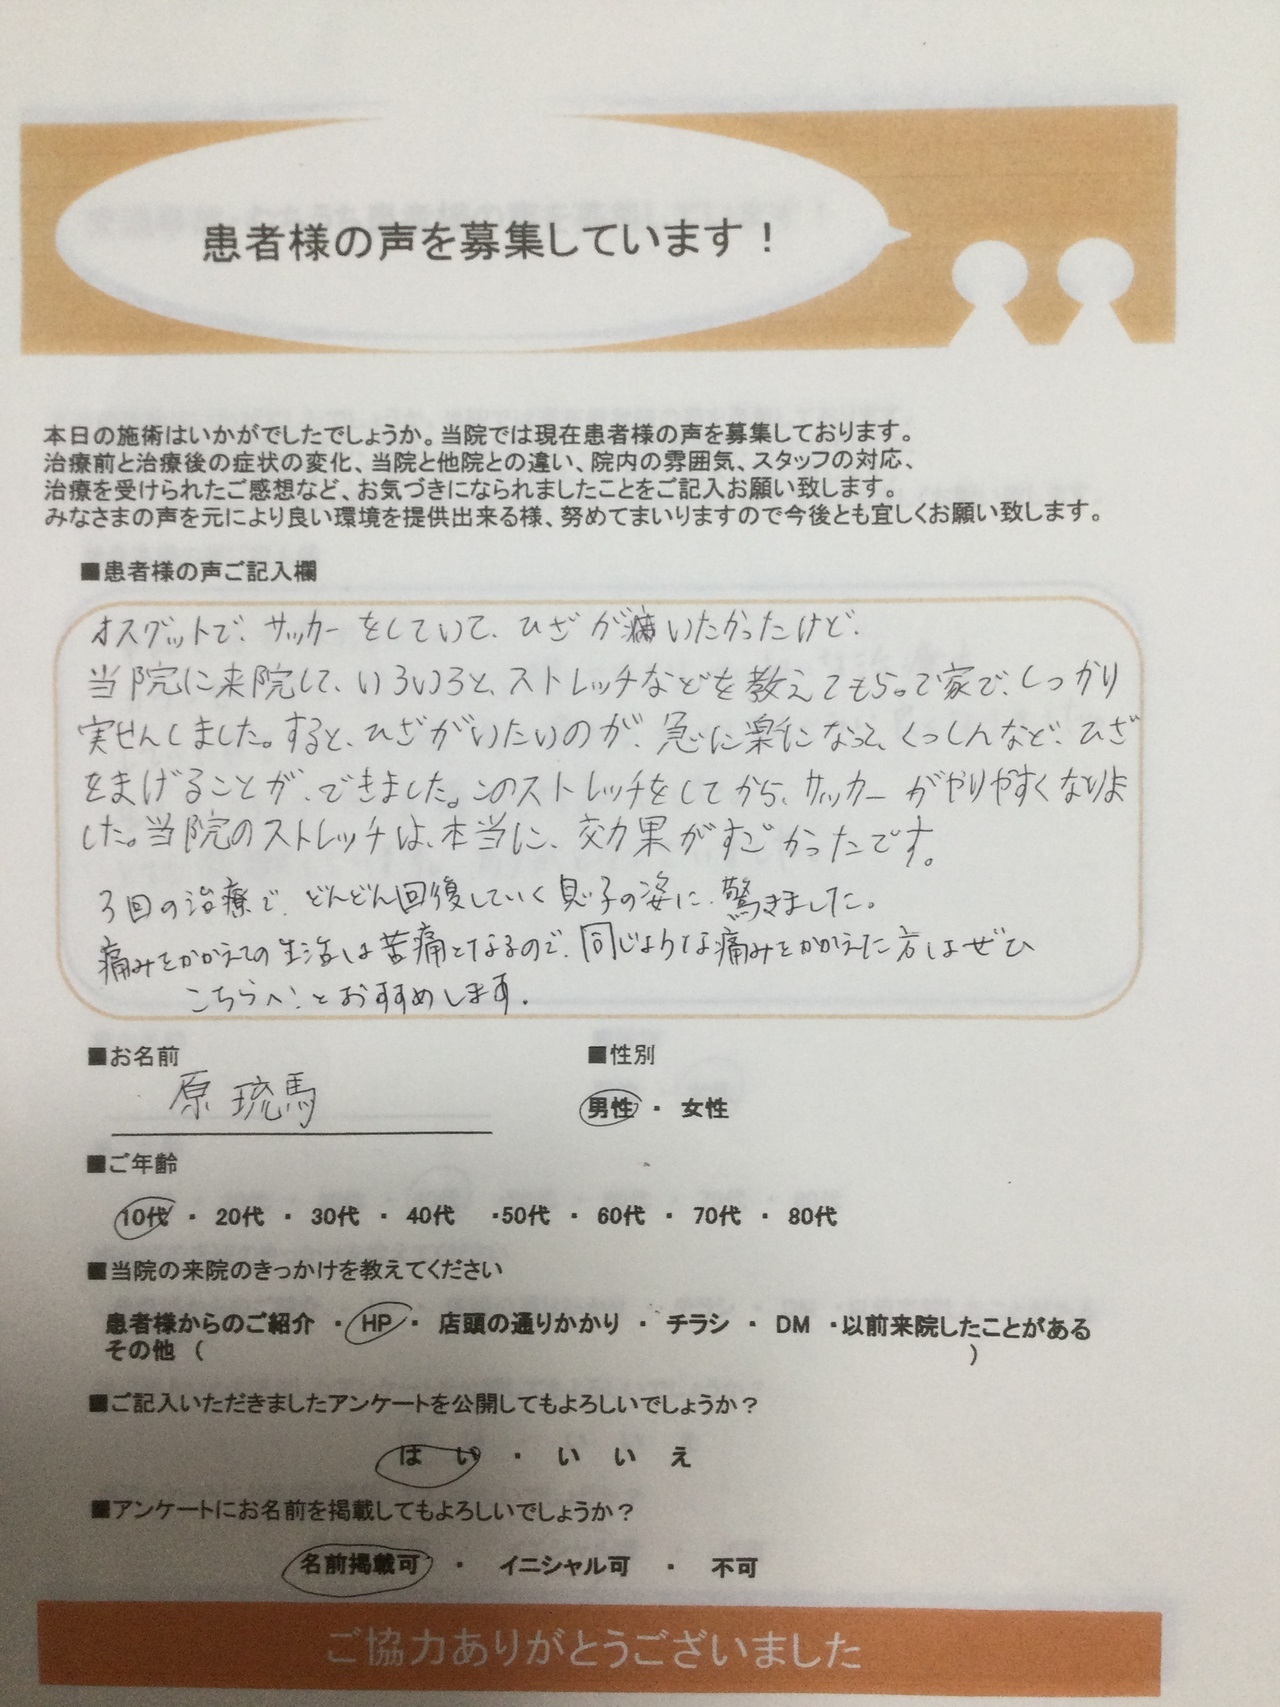 患者様の声を募集しています！
本日の施術はいかがでしたでしょうか。当院では現在患者様の声を募集しております。
治療前と治療後の症状の変化、当院と他院との違い、院内の雰囲気、スタッフの対応、
治療を受けられたご感想など、お気づきになられましたことをご記入お願い致します。
みなさまの声を元により良い環境を提供出来る様、努めてまいりますので今後とも宜しくお願い致します。
■患者様の声ご記入欄
オスグットで、サッカーをしていて、ひざが痛いたかったけど、
当院に来院して、いろいろと、ストレッチなどを教えてもらって家で、しっかり
実せんしました。すると、ひざがいたいのが、急に楽になって、くっしんなど、ひざ
をまげることが、できました。このストレッチをしてから、サッカーがやりやすくなりま
した。当院のストレッチは、本当に、効果がすごかったです。
3回の治療で、どんどん回復していく息子の姿に、驚きました。
痛みをかかえての生活は苦痛となるので、同じような痛みをかかえた方はぜひ
こちらへ！とおすすめします。
■お名前 ■性別
原 琉馬 男性 ・ 女性
■ご年齢
10代 ・ 20代 ・ 30代 ・ 40代 ・50代 ・ 60代 ・ 70代 ・ 80代
■当院の来院のきっかけを教えてください
患者様からのご紹介 ・ HP ・ 店頭の通りかかり ・ チラシ ・ DM ・以前来院したことがある
その他 （ ）
■ご記入いただきましたアンケートを公開してもよろしいでしょうか？
は い ・ い い え
■アンケートにお名前を掲載してもよろしいでしょうか？
名前掲載可 ・ イニシャル可 ・ 不可
ご協力ありがとうございました